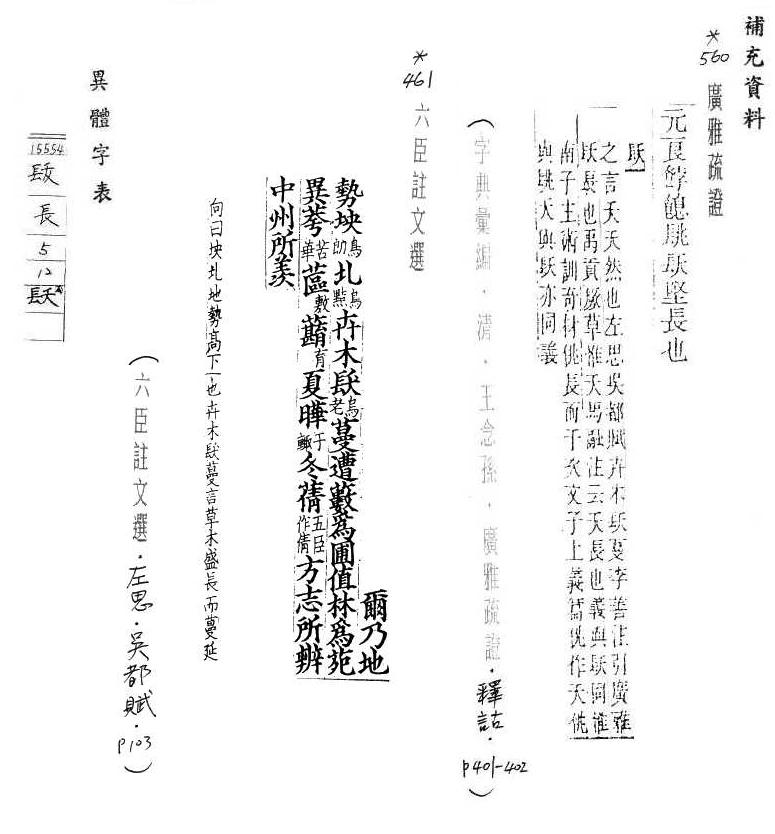 補充資料
*560 廣雅疏證
元良 镺堅長也
镺
之言夭夭然也左思吳都賦卉木镺蔓李善注引廣雅
镺長也禹貢厥草惟夭馬融注云夭長也義與镺同淮
南子主術訓奇材佻長而干次文子上義篇佻作夭佻
與䠷夭與镺亦同義
(字典彙編·清·王念孫·廣雅疏證·釋詁·p401-402)
*461 六臣註文選
爾乃地
勢坱烏朗圠烏黠卉木镺烏老蔓遭藪爲圃值林爲苑
異荂苦華蓲敷蘛育夏曄于輙冬蒨五臣作倩方志所辨
中州所羨
向曰坱圠地勢高下也卉木镺蔓言草木盛長而蔓延
(六臣註文選·左思·吳都賦·p103)
異體字表
15554
镺
長
5
12
镺